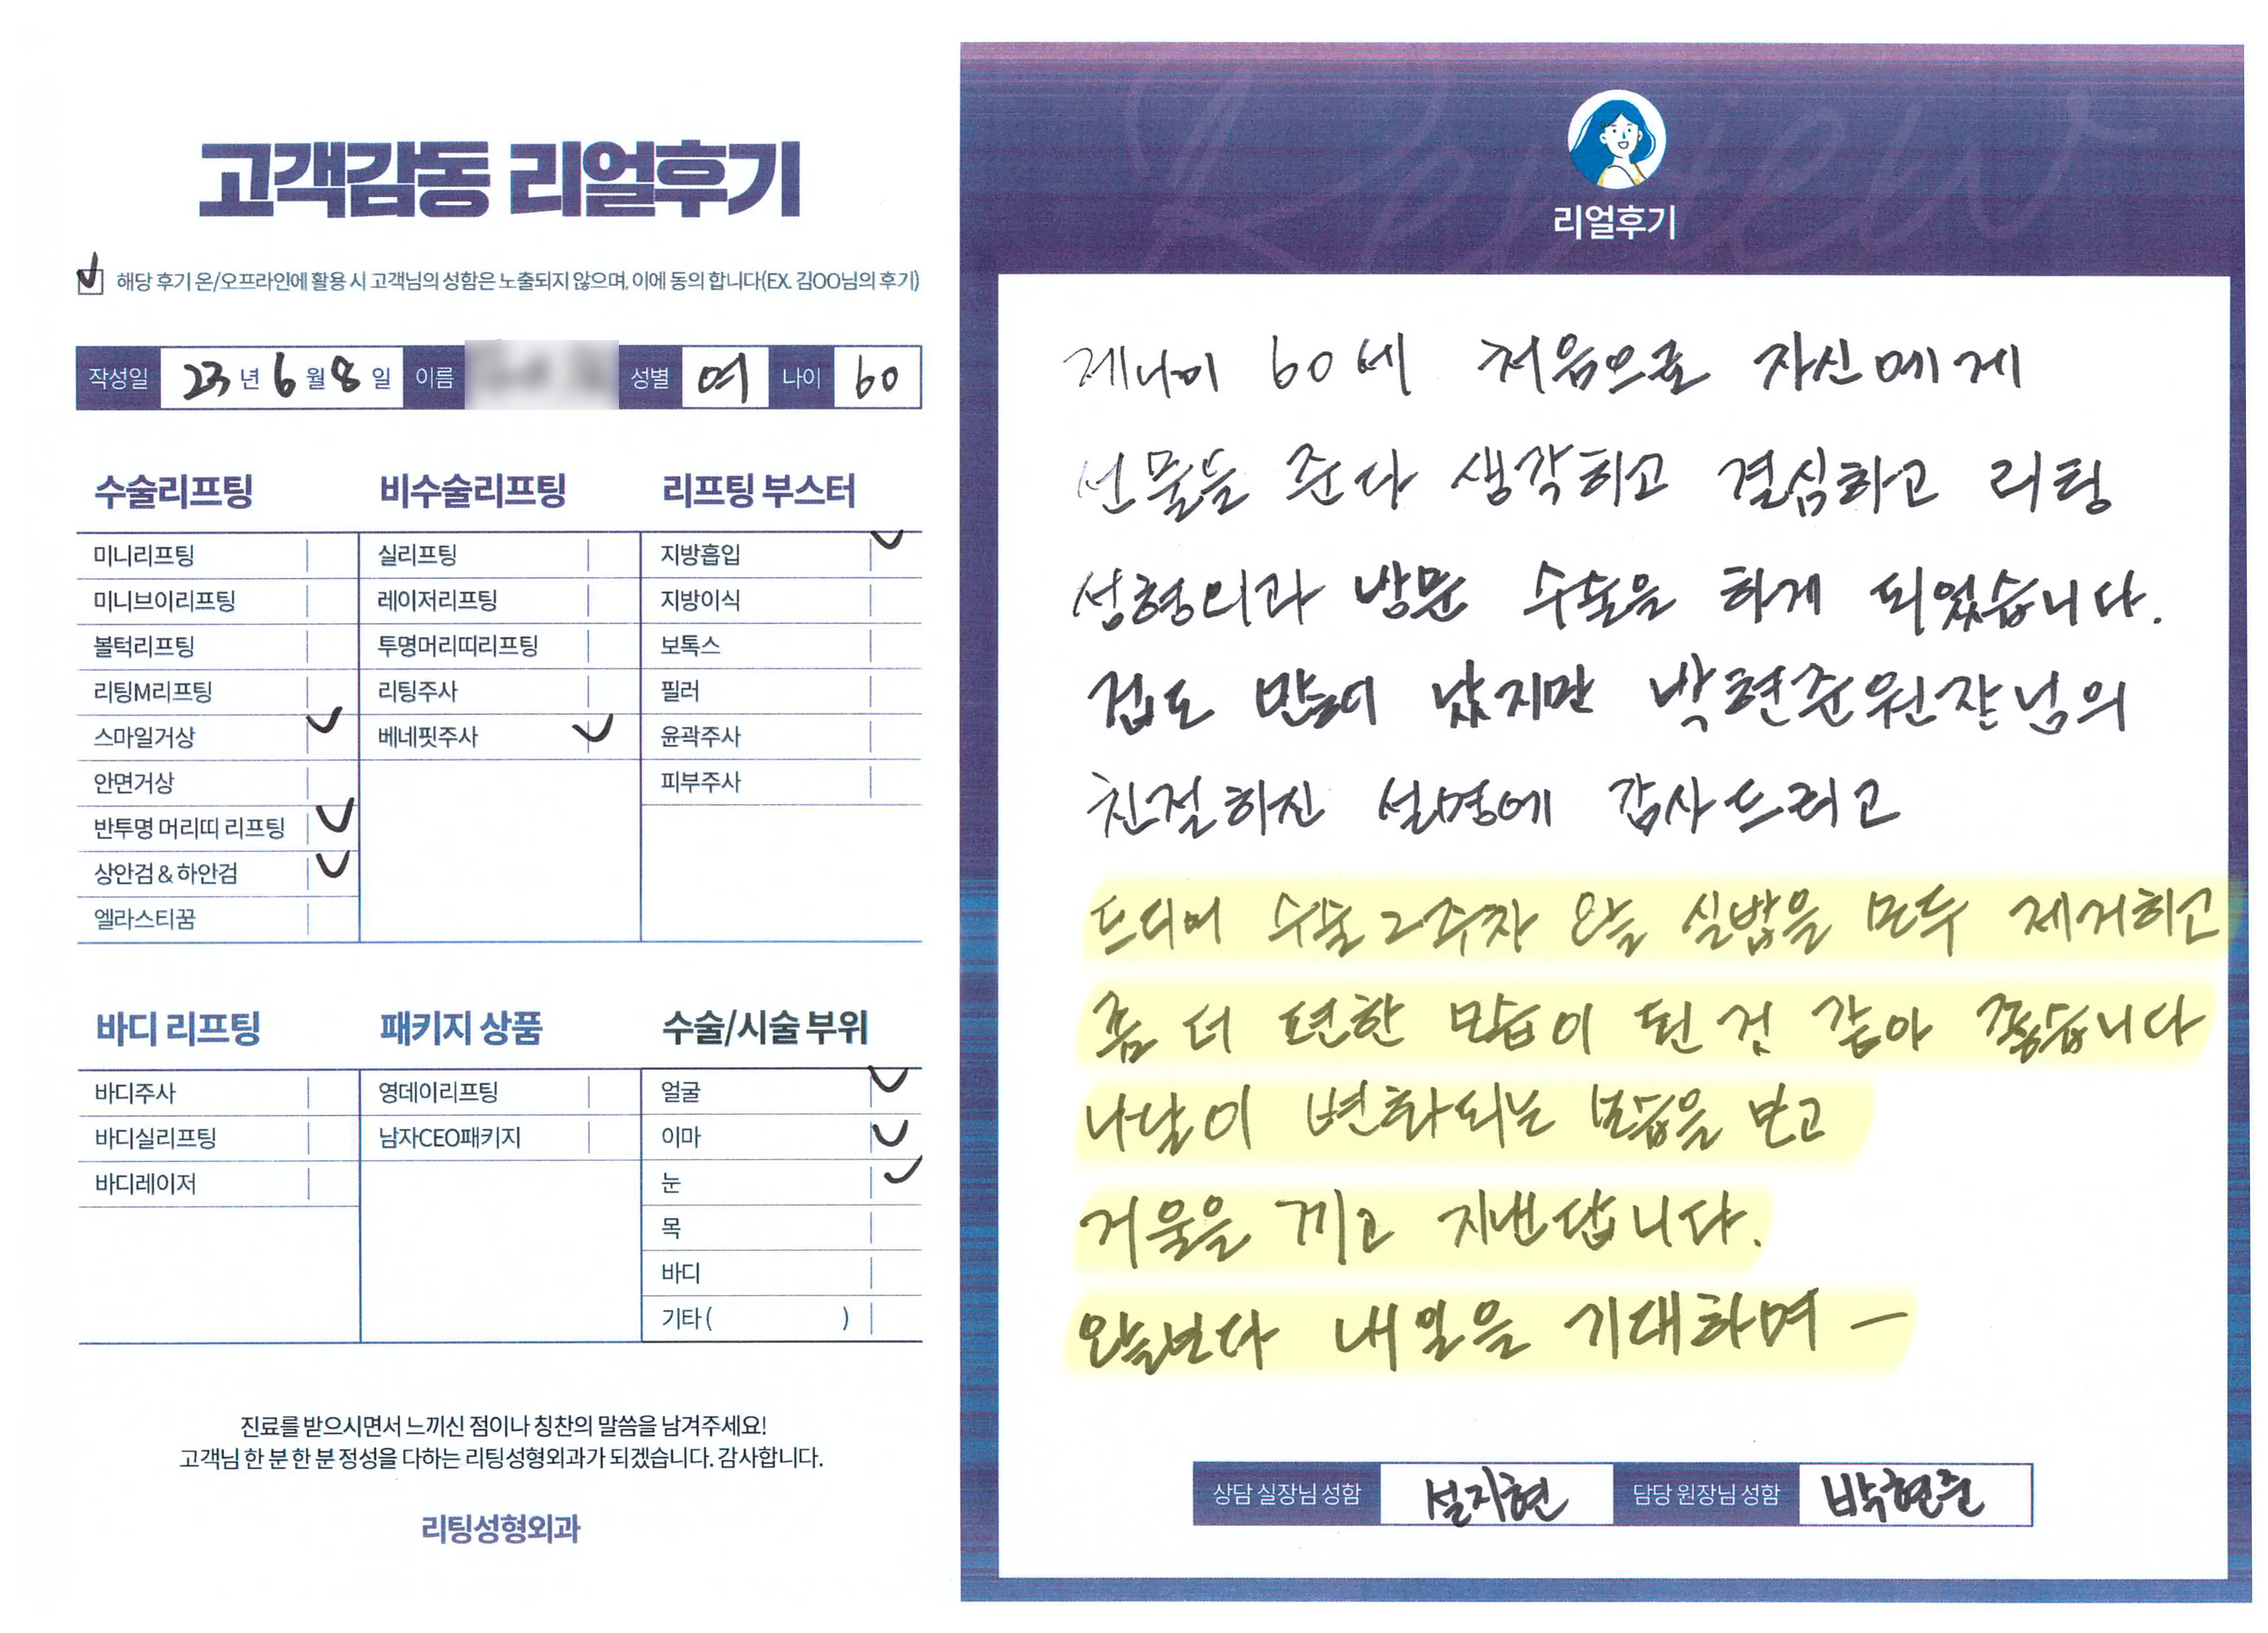 고객감동 리얼후기
해당 후기 온/오프라인에 활용 시 고객님의 성함은 노출되지 않으며, 이에 동의 합니다(EX. 김OO님의 후기)
작성일 23년 6월 8일 이름 성별 여 나이 60
수술리프팅
미니리프팅
미니브이리프팅
볼턱리프팅
리팅M리프팅
스마일거상
안면거상
반투명 머리띠 리프팅
상안검&하안검
엘라스티꿈
비수술리프팅
실리프팅
레이저리프팅
투명머리띠리프팅
리팅주사
베네핏주사
리프팅 부스터
지방흡입
지방이식
보톡스
필러
윤곽주사
피부주사
바디 리프팅
바디주사
바디실리프팅
바디레이저
패키지 상품
영데이리프팅
남자CEO패키지
수술/시술 부위
얼굴
이마
눈
목
바디
기타 ( )
진료를 받으시면서 느끼신 점이나 칭찬의 말씀을 남겨주세요!
고객님 한 분 한 분 정성을 다하는 리팅성형외과가 되겠습니다. 감사합니다.
리팅성형외과
Review
리얼후기
제나이 60세 처음으로 자신에게
선물을 준다 생각하고 결심하고 리팅
성형외과 방문 수술을 하게 되었습니다.
겁도 많이 났지만 박현준원장님의
친절하신 설명에 감사드리고
드디어 수술 2주차 오늘 실밥을 모두 제거하고
좀 더 편한 모습이 된 것 같아 좋습니다
나날이 변화되는 모습을 보고
거울을 끼고 지낸답니다.
오늘보다 내일을 기대하며 —
상담 실장님 성함 설지현 담당 원장님 성함 박현준